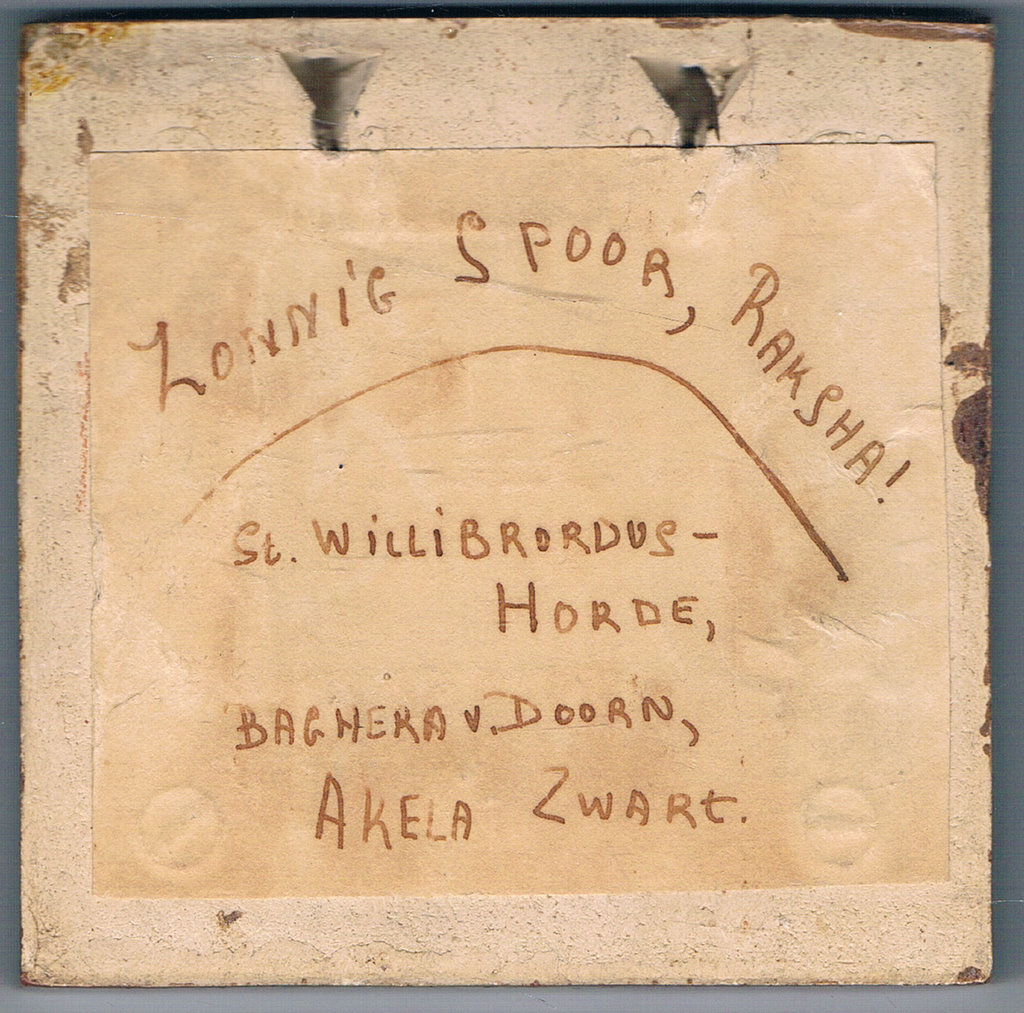 ZONNIG SPOOR, RAKSHA!
St. WILLIBRORDUS-
HORDE,
BAGHERA v. DOORN,
AKELA ZWART.